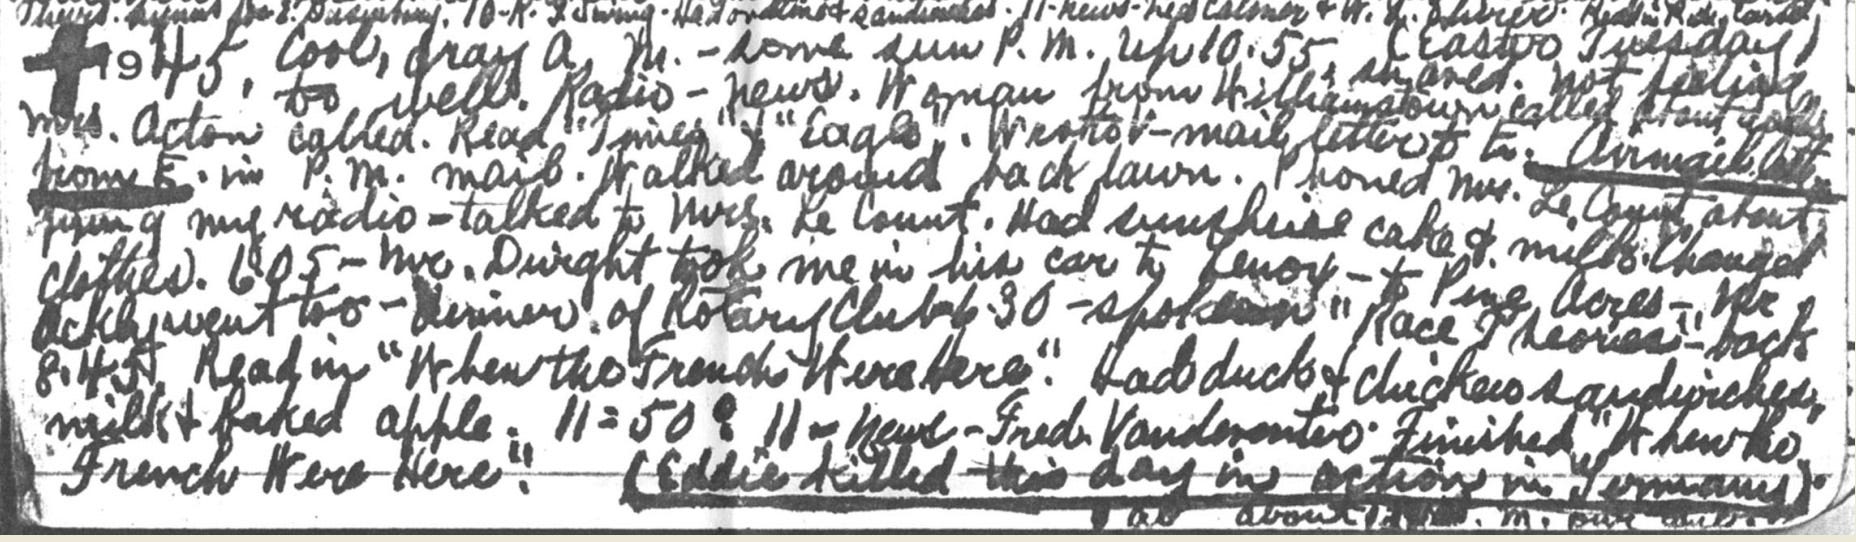 10-K. Had sandwiches. 11-News-Ned Calmer & W.
1945, Cool, gray A. M. - some sun P. M. Up 10:55, (Easter Tuesday)
shaved. Not feeling
too well. Radio - News. Woman from Williamstown called about
Mrs. Acton called. Read "Times" & "Eagle". Wrote V-mail letter to E. Airmail letter
from E. in P. M. mail. Walked around back lawn. Phoned Mr. Le Count about
fixing my radio - talked to Mrs. Le Count. Had sunshine cake & milk. Changed
clothes. 6:05 - Mr. Dwight took me in his car to Lenox - to Pine Acres - Mr.
Ackly went too - dinner of Rotary Club 6:30 - spoke on "Race Theories" - back
8:45. Read in "When the French Were Here". Had duck & chicken sandwiches,
milk & baked apple. 11=50° 11 - News - Fred Vandeventer. Finished "When the
French Were Here". (Eddie killed this day in action in Germany).
about M. our